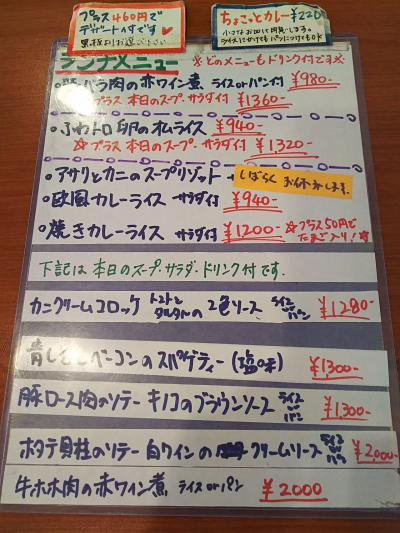 プラス460円で
デザート付です
黒板よりお選び下さい
ちょこっとカレー¥220
小さなお皿に用意します。
ライスにかけてもパンにつけてもOK
ランチメニュー
※どのメニューもドリンク付です※
・豚バラ肉の赤ワイン煮 ライスorパン付 ¥980-
プラス 本日のスープ・サラダ付 ¥1360-
・ふわトロ卵のオムライス ¥940-
☆プラス 本日のスープ・サラダ付 ¥1,320-
・アサリとカニのスープリゾット
しばらくお休みします。
・欧風カレーライス サラダ付 ¥940-
・焼きカレーライス サラダ付 ¥1200- ☆プラス50円で
たまご入り!☆
下記は本日のスープ・サラダ・ドリンク付です。
カニクリームコロッケ トマトとタルタルの2色ソース ライスorパン ¥1280-
青じそとベーコンのスパゲティー(塩味) ¥1,300-
豚ロース肉のソテー キノコのブラウンソース ライスorパン ¥1,300-
ホタテ貝柱のソテー 白ワインのクリームソース ライスorパン ¥2,000-
牛ホホ肉の赤ワイン煮 ライスorパン ¥2000